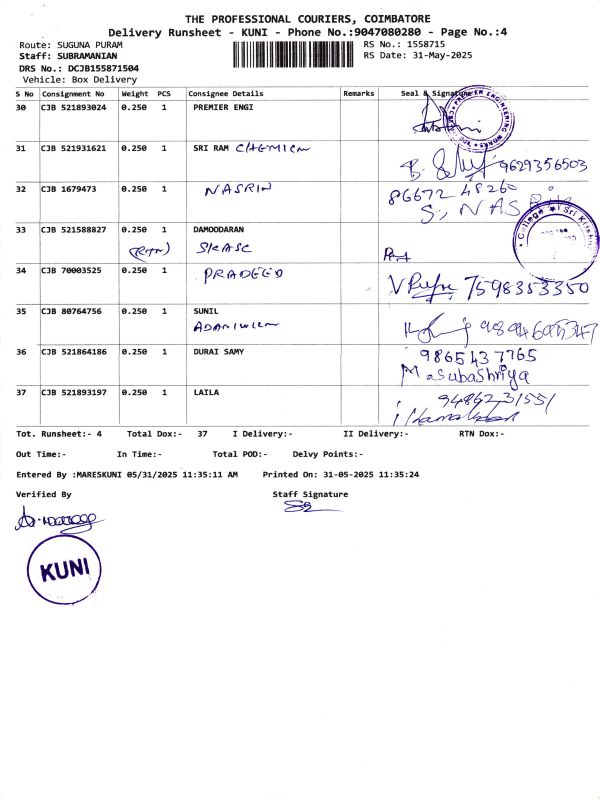 THE PROFESSIONAL COURIERS, COIMBATORE
Delivery Runsheet - KUNI - Phone No.:9047080280 - Page No.:4
Route: SUGUNA PURAM RS No.: 1558715
Staff: SUBRAMANIAN RS Date: 31-May-2025
DRS No.: DCJB155871504
Vehicle: Box Delivery
S No Consignment No Weight PCS Consignee Details Remarks Seal & Signature
30 CJB 521893024 0.250 1 PREMIER ENGI
31 CJB 521931621 0.250 1 SRI RAM CHEMICM
9629356503
32 CJB 1679473 0.250 1 NASRIN
86672 48260
S, NAS
33 CJB 521588827 0.250 1 DAMOODARAN
SKASC
College Sri Krish
34 CJB 70003525 0.250 1 PRADEED
7598353350
35 CJB 80764756 0.250 1 SUNIL
36 CJB 521864186 0.250 1 DURAI SAMY
9865437765
MaSubaShriya
37 CJB 521893197 0.250 1 LAILA
9486231551
Tot. Runsheet:- 4 Total Dox:- 37 I Delivery:- II Delivery:- RTN Dox:-
Out Time:- In Time:- Total POD:- Delvy Points:-
Entered By :MARESKUNI 05/31/2025 11:35:11 AM Printed On: 31-05-2025 11:35:24
Verified By Staff Signature
KUNI